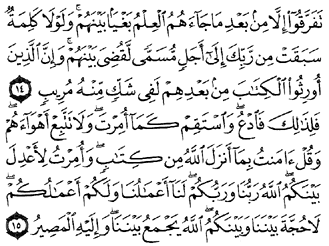 تَفَرَّقُوٓاْ إِلَّا مِنۢ بَعۡدِ مَا جَآءَهُمُ ٱلۡعِلۡمُ بَغۡيَۢا بَيۡنَهُمۡۚ وَلَوۡلَا كَلِمَةٞ
سَبَقَتۡ مِن رَّبِّكَ إِلَىٰٓ أَجَلٖ مُّسَمّٗى لَّقُضِيَ بَيۡنَهُمۡۚ وَإِنَّ ٱلَّذِينَ
أُورِثُواْ ٱلۡكِتَٰبَ مِنۢ بَعۡدِهِمۡ لَفِي شَكّٖ مِّنۡهُ مُرِيبٖ ١٤
فَلِذَٰلِكَ فَٱدۡعُۖ وَٱسۡتَقِمۡ كَمَآ أُمِرۡتَۖ وَلَا تَتَّبِعۡ أَهۡوَآءَهُمۡۖ
وَقُلۡ ءَامَنتُ بِمَآ أَنزَلَ ٱللَّهُ مِن كِتَٰبٖۖ وَأُمِرۡتُ لِأَعۡدِلَ
بَيۡنَكُمُۖ ٱللَّهُ رَبُّنَا وَرَبُّكُمۡۖ لَنَآ أَعۡمَٰلُنَا وَلَكُمۡ أَعۡمَٰلُكُمۡۖ
لَا حُجَّةَ بَيۡنَنَا وَبَيۡنَكُمُۖ ٱللَّهُ يَجۡمَعُ بَيۡنَنَاۖ وَإِلَيۡهِ ٱلۡمَصِيرُ ١٥